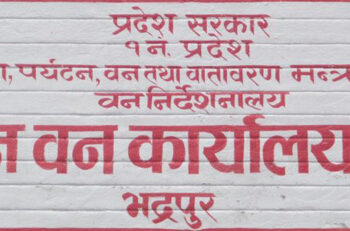 प्रदेश सरकार
१ नं. प्रदेश
, पर्यटन, वन तथा वातावरण मन्त्र
वन निर्देशनालय
न वन कार्यालय
भद्रपुर